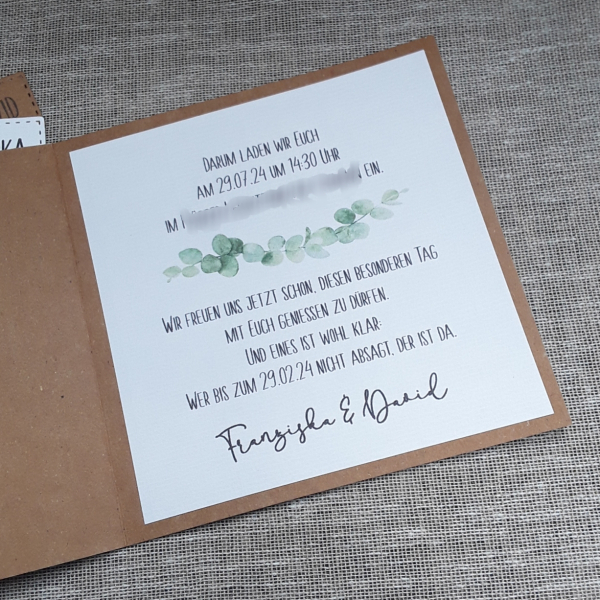 ID
KA
DARUM LADEN WIR EUCH
AM 29.07.24 UM 14:30 UHR
IM EIN.
WIR FREUEN UNS JETZT SCHON, DIESEN BESONDEREN TAG
MIT EUCH GENIESSEN ZU DÜRFEN.
UND EINES IST WOHL KLAR:
WER BIS ZUM 29.02.24 NICHT ABSAGT, DER IST DA.
Franziska & David